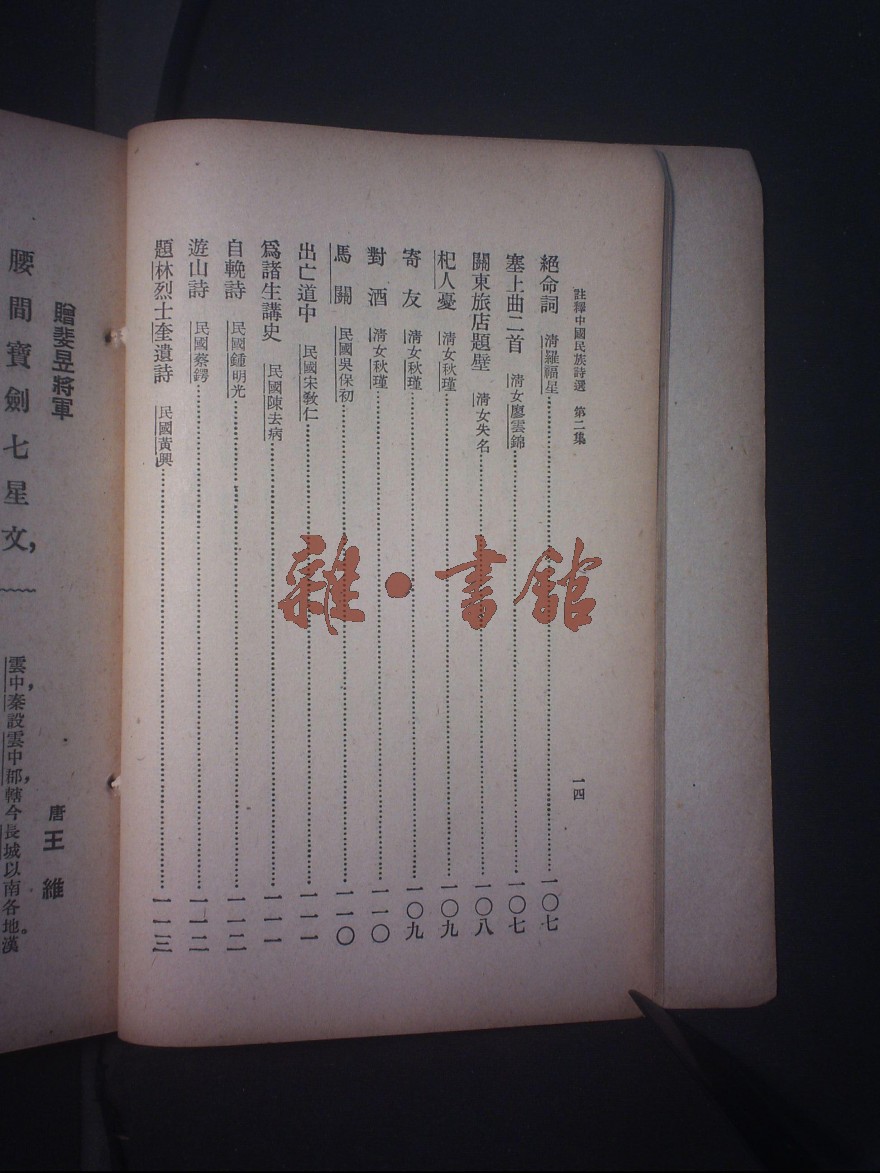 註釋中國民族詩選 第二集
一四
絕命詞 清羅福星……一〇七
塞上曲二首 清女廖雲錦……一〇七
關東旅店題壁 清女失名……一〇八
杞人憂 清女秋瑾……一〇九
寄友 清女秋瑾……一〇九
對酒 清女秋瑾……一一〇
馬關 民國吳保初……一一〇
出亡道中 民國宋敎仁……一一一
爲諸生講史 民國陳去病……一一一
自輓詩 民國鍾明光……一一二
遊山詩 民國蔡鍔……一一二
題林烈士奎遺詩 民國黃興……一一三
贈裴旻將軍
唐王維
腰間寶劍七星文，
雲中秦設雲中郡，轄今長城以南各地。漢
雜·書館